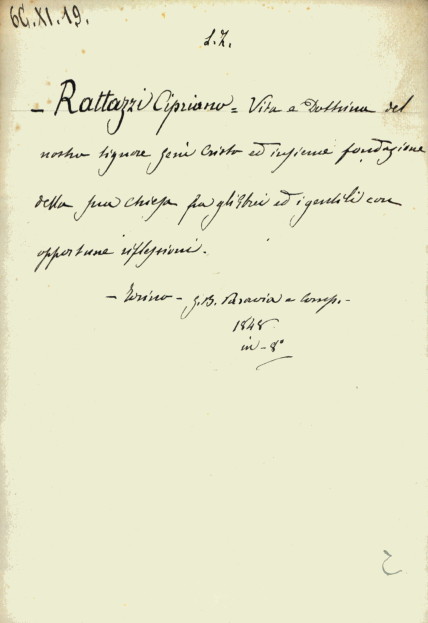 6C.XI.19.
S.Z.
- Rattazzi Cipriano = Vita e Dottrina del
nostro signore Gesù Cristo ed insieme fondazione
della sua chiesa fra gli Ebrei ed i gentili con
opportune riflessioni.
- Torino - G.B. Paravia e Comp. -
1848
in - 8°